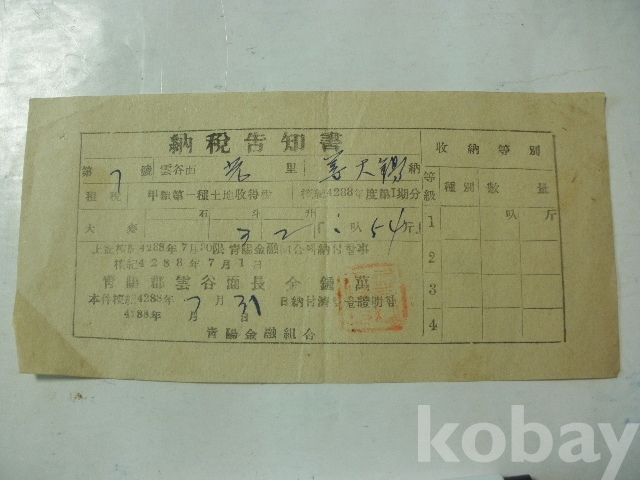 納稅告知書
第 7 號 雲谷面 里 姜大錫 納
租稅 甲類第一種土地收得稅 檀紀4288年度第1期分
大麥 石 斗 升 3 2 叺 54 斤
4288年7月30限靑陽金融組合
檀紀4288年7月1日
靑陽郡雲谷面長 金鍾萬
本件檀紀4288年 7月 31日納付濟 證明함
4288年 月 日
靑陽金融組合
收納等別
等級 種別 數量
1 叺 斤
2
3
4
kobay